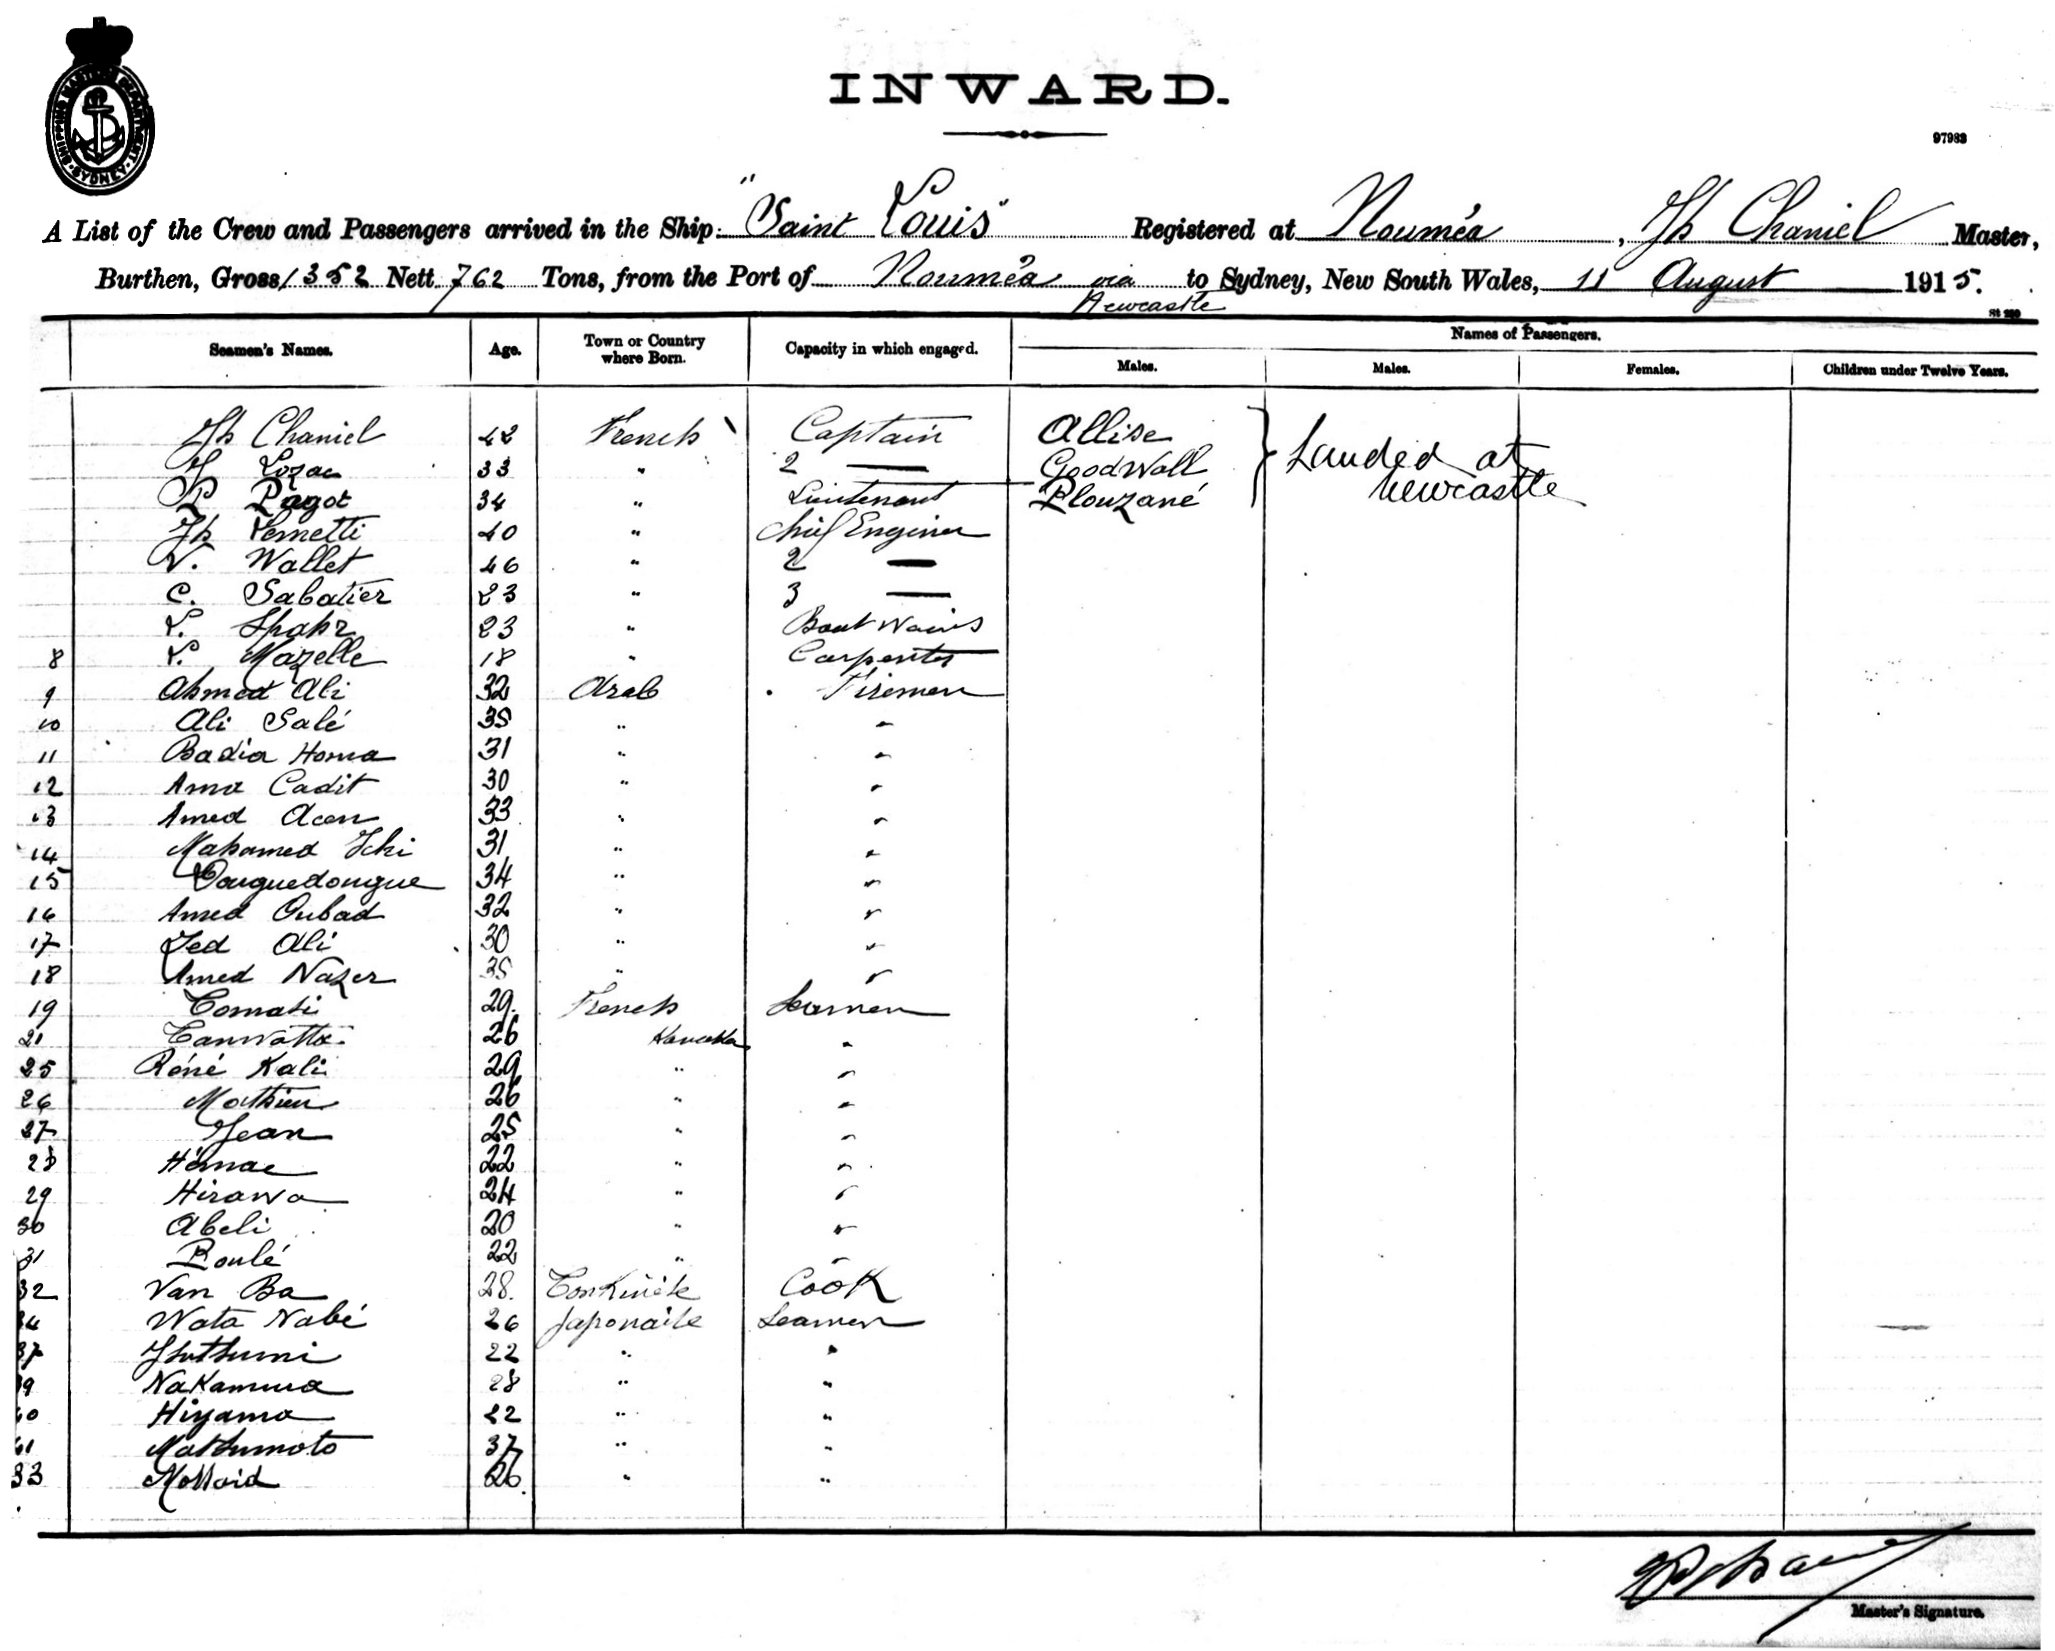 SHIPPING MASTER'S DEPARTMENT SYDNEY
INWARD.
97983
A List of the Crew and Passengers arrived in the Ship "Saint Louis" Registered at Nouméa, Jh Chaniel Master,
Burthen, Gross 1352 Nett 762 Tons, from the Port of Nouméa via Newcastle to Sydney, New South Wales, 11 August 1915.
Seamen's Names. Age. Town or Country where Born. Capacity in which engaged. Names of Passengers.
Males. Males. Females. Children under Twelve Years.
Jh Chaniel 42 French Captain Allise } Landed at
Lozac 33 " 2 — Goodwall
P Pagot 34 " Lieutenant Plouzané Newcastle
Jh Vernetti 40 " Chief Enginer
V. Wallet 46 " 2 —
C. Sabatier 23 " 3 —
Spahr 23 " Boat Wains
8 Mazelle 18 " Carpenter
9 Ahmed Ali 32 Arab Firemen
10 Ali Salé 35 " "
11 Badia Homa 31 " "
12 Ama Cadit 30 " "
13 Amed Acen 33 " "
14 Mahamed Ichi 31 " "
15 Douguedougue 34 " "
16 Amed Oubad 32 " "
17 Zed Ali 30 " "
18 Amed Nazer 35 " "
19 Tomati 29 French Seamen
21 Tanwatta 26 Kanaka "
25 Réné Kali 29 " "
26 Mathieu 26 " "
27 Jean 25 " "
28 Hémae 22 " "
29 Hirawa 24 " "
30 Abeli 20 " "
31 Poulé 22 " "
32 Van Ba 28 Tonkinese Cook
34 Wata Nabé 26 Japonaise Seamen
37 22 " "
39 Nakamura 28 " "
40 Hiyama 22 " "
41 Matsumoto 37 " "
33 26 " "
Master's Signature.